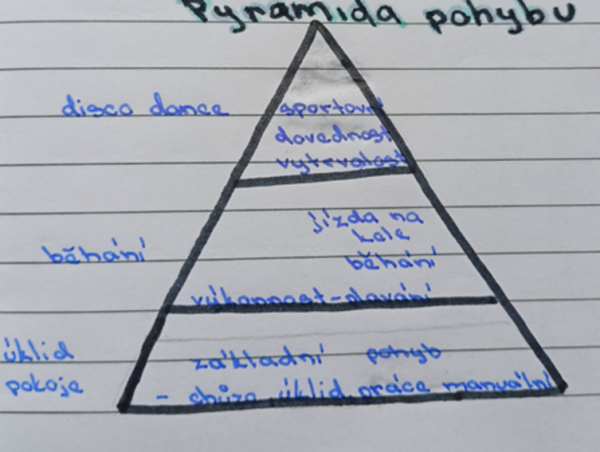 Pyramida pohybu
disco dance sportovní
dovednost
vytrvalost
jízda na
kole
běhání běhání
výkonnost-plavání
úklid základní pohyb
pokoje - chůze úklid práce manuální